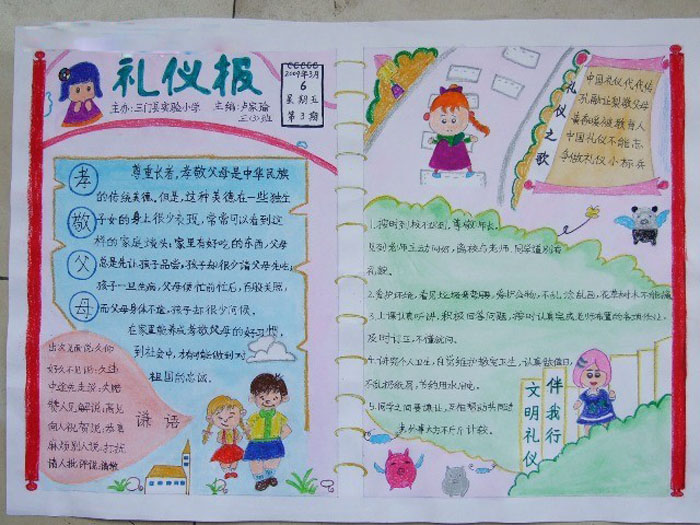 礼仪报
主办:三门县实验小学 主编:卢家瑜
三(3)班
2009年3月
6
星期五
第3期
孝敬父母
尊重长者,孝敬父母是中华民族
的传统美德。但是,这种美德在一些独生
子女的身上很少表现,常常可以看到这
样的家庭镜头:家里有好吃的东西,父母
总是先让孩子品尝,孩子却很少请父母先吃;
孩子一旦生病,父母便忙前忙后,百般关照,
而父母身体不适,孩子却很少问候。
在家里能养成孝敬父母的好习惯,
到社会中,才有可能做到对
祖国的忠诚。
谦语
初次见面说:久仰
好久不见说:久违
中途先走说:失陪
赞人见解说:高见
向人祝贺说:恭喜
麻烦别人说:打扰
请人批评说:请教
礼仪之歌
中国礼仪代代传
孔融让梨敬父母
黄香温席教育人
中国礼仪不能忘
争做礼仪小标兵
1.按时到校不迟到,尊敬师长,
见到老师主动问好,离校与老师、同学道别有
礼貌。
2.爱护环境,看见垃圾弯弯腰,爱护公物,不乱涂乱画,花草树木不能摘
3.上课认真听讲,积极回答问题,按时认真完成老师布置的各项作业,
及时订正,不懂就问。
4.讲究个人卫生,自觉维护教室卫生,认真做值日,
不乱扔纸屑,节约用水用电。
5.同学之间要谦让,互相帮助共同进
步,补事大方不斤斤计较。
文明礼仪
伴我行